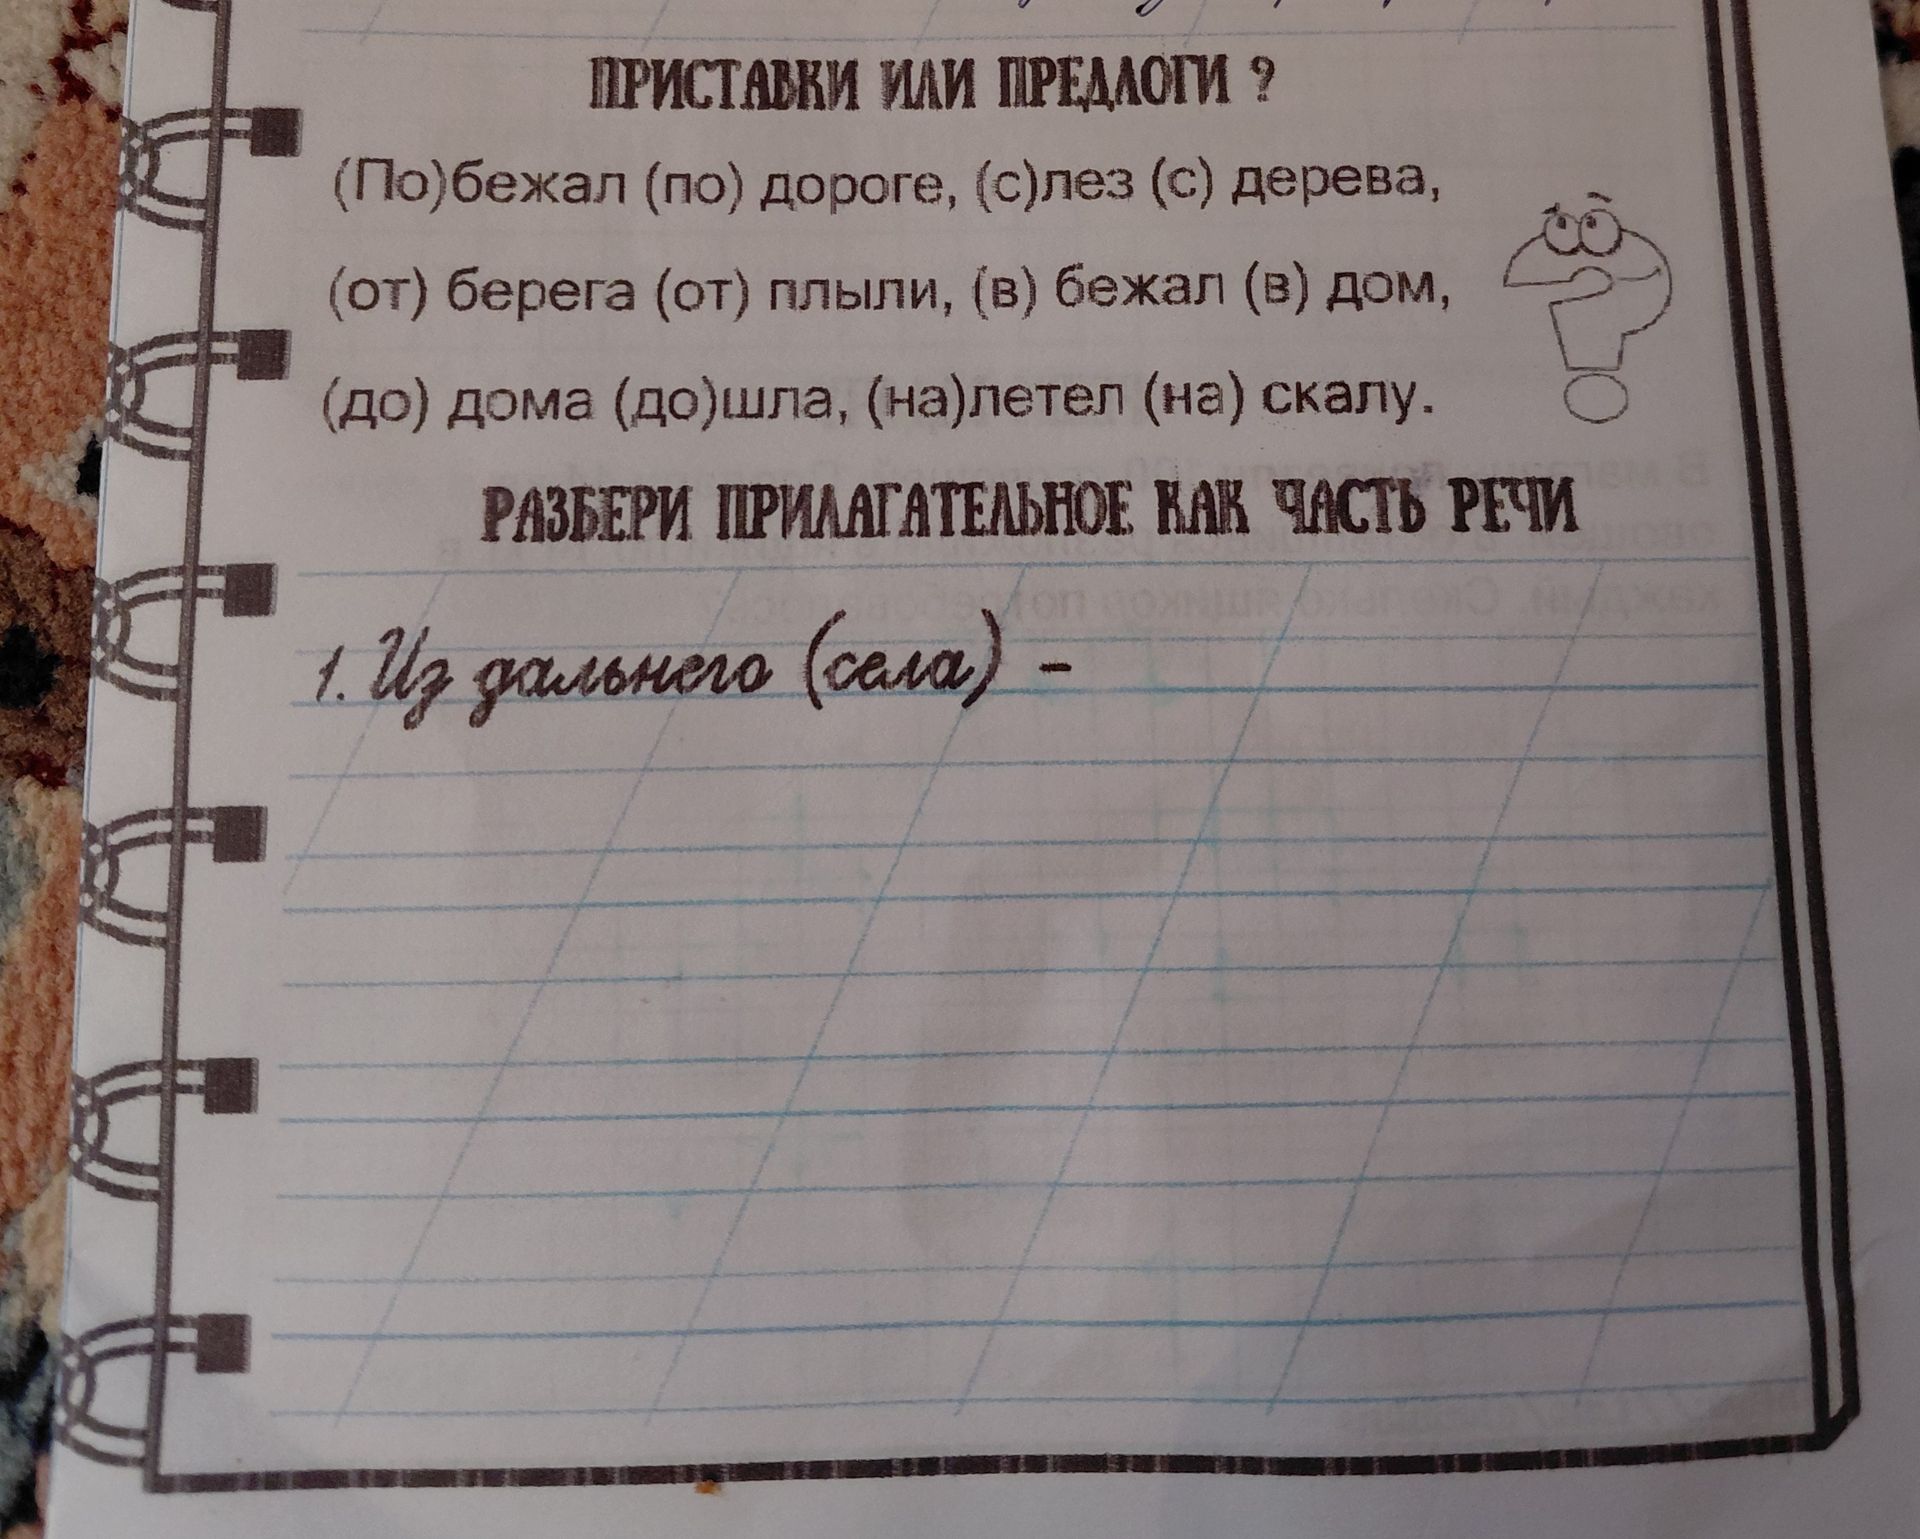 ПРИСТАВКИ ИЛИ ПРЕДЛОГИ ?
(По)бежал (по) дороге, (с)лез (с) дерева,
(от) берега (от) плыли, (в) бежал (в) дом,
(до) дома (до)шла, (на)летел (на) скалу.
РАЗБЕРИ ПРИЛАГАТЕЛЬНОЕ КАК ЧАСТЬ РЕЧИ
1. Из дальнего (села) –